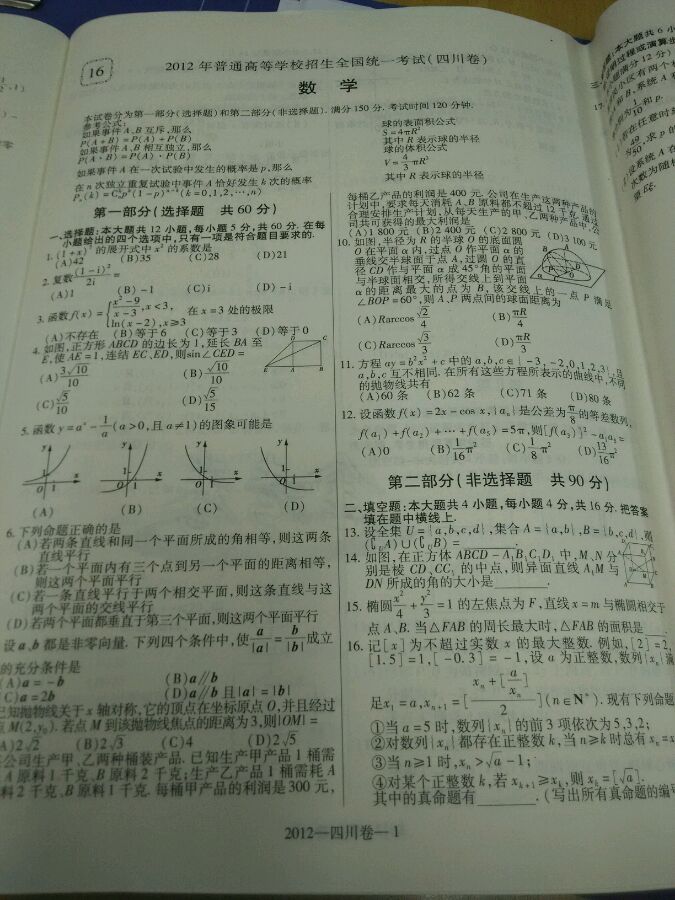 16
2012年普通高等学校招生全国统一考试(四川卷)
数 学
本试卷分为第一部分(选择题)和第二部分(非选择题).满分150分.考试时间120分钟.
参考公式:
如果事件A、B互斥,那么
P(A+B)=P(A)+P(B)
如果事件A、B相互独立,那么
P(A·B)=P(A)·P(B)
如果事件A在一次试验中发生的概率是p,那么
在n次独立重复试验中事件A恰好发生k次的概率
Pₙ(k)=Cₙᵏpᵏ(1-p)ⁿ⁻ᵏ(k=0,1,2,…,n)
球的表面积公式
S=4πR²
其中R表示球的半径
球的体积公式
V=4/3πR³
其中R表示球的半径
第一部分(选择题 共60分)
一、选择题:本大题共12小题,每小题5分,共60分.在每
小题给出的四个选项中,只有一项是符合题目要求的.
1.(1+x)⁷的展开式中x²的系数是
(A)42 (B)35 (C)28 (D)21
2.复数(1-i)²/2i=
(A)1 (B)-1 (C)i (D)-i
3.函数f(x)={x²-9/x-3,x<3, ln(x-2),x≥3 在x=3处的极限
(A)不存在 (B)等于6 (C)等于3 (D)等于0
4.如图,正方形ABCD的边长为1,延长BA至
E,使AE=1,连结EC、ED,则sin∠CED=
(A)3√10/10 (B)√10/10
(C)√5/10 (D)√5/15
D C
E A B
5.函数y=aˣ-1/a(a>0,且a≠1)的图象可能是
(A) (B) (C) (D)
6.下列命题正确的是
(A)若两条直线和同一个平面所成的角相等,则这两条
直线平行
(B)若一个平面内有三个点到另一个平面的距离相等,
则这两个平面平行
(C)若一条直线平行于两个相交平面,则这条直线与这
两个平面的交线平行
(D)若两个平面都垂直于第三个平面,则这两个平面平行
设a、b都是非零向量.下列四个条件中,使a/|a|=b/|b|成立
的充分条件是
(A)a=-b (B)a∥b
(C)a=2b (D)a∥b且|a|=|b|
已知抛物线关于x轴对称,它的顶点在坐标原点O,并且经过
点M(2,y₀).若点M到该抛物线焦点的距离为3,则|OM|=
(A)2√2 (B)2√3 (C)4 (D)2√5
公司生产甲、乙两种桶装产品.已知生产甲产品1桶需
A原料1千克、B原料2千克;生产乙产品1桶需耗A
料2千克、B原料1千克.每桶甲产品的利润是300元,
每桶乙产品的利润是400元.公司在生产这两种产品的
计划中,要求每天消耗A、B原料都不超过12千克.通过
合理安排生产计划,从每天生产的甲、乙两种产品中,公
司共可获得的最大利润是
(A)1 800元 (B)2 400元 (C)2 800元 (D)3 100元
10.如图,半径为R的半球O的底面圆
O在平面α内,过点O作平面α的
垂线交半球面于点A,过圆O的直
径CD作与平面α成45°角的平面
与半球面相交,所得交线上到平面
α的距离最大的点为B,该交线上的一点P满足
∠BOP=60°,则A、P两点间的球面距离为
(A)Rarccos√2/4 (B)πR/4
(C)Rarccos√3/3 (D)πR/3
11.方程ay=b²x²+c中的a,b,c∈{-3,-2,0,1,2,3},且
a,b,c互不相同.在所有这些方程所表示的曲线中,不同
的抛物线共有
(A)60条 (B)62条 (C)71条 (D)80条
12.设函数f(x)=2x-cos x,{aₙ}是公差为π/8的等差数列,
f(a₁)+f(a₂)+…+f(a₅)=5π,则[f(a₃)]²-a₁a₅=
(A)0 (B)1/16π² (C)1/8π² (D)13/16π²
第二部分(非选择题 共90分)
二、填空题:本大题共4小题,每小题4分,共16分.把答案
填在题中横线上.
13.设全集U={a,b,c,d},集合A={a,b},B={b,c,d},则
(∁ᵤA)∪(∁ᵤB)=
14.如图,在正方体ABCD-A₁B₁C₁D₁中,M、N分
别是棱CD、CC₁的中点,则异面直线A₁M与
DN所成的角的大小是______.
15.椭圆x²/4+y²/3=1的左焦点为F,直线x=m与椭圆相交于
点A、B.当△FAB的周长最大时,△FAB的面积是
16.记[x]为不超过实数x的最大整数.例如,[2]=2,
[1.5]=1,[-0.3]=-1,设a为正整数,数列{xₙ}满
足x₁=a,xₙ₊₁=[(xₙ+[a/xₙ])/2](n∈N*).现有下列命题
①当a=5时,数列{xₙ}的前3项依次为5,3,2;
②对数列{xₙ}都存在正整数k,当n≥k时总有xₙ=x
③当n≥1时,xₙ>√a-1;
④对某个正整数k,若xₖ₊₁≥xₖ,则xₖ=[√a].
其中的真命题有______.(写出所有真命题的编号
2012—四川卷—1
三、
本大题共6小
过程或演算
满分12分)
17.
区有两个相
和B,系统A和
1/10和p.
若在任意时刻
49/50,求p的
设系统A在
次数为随机